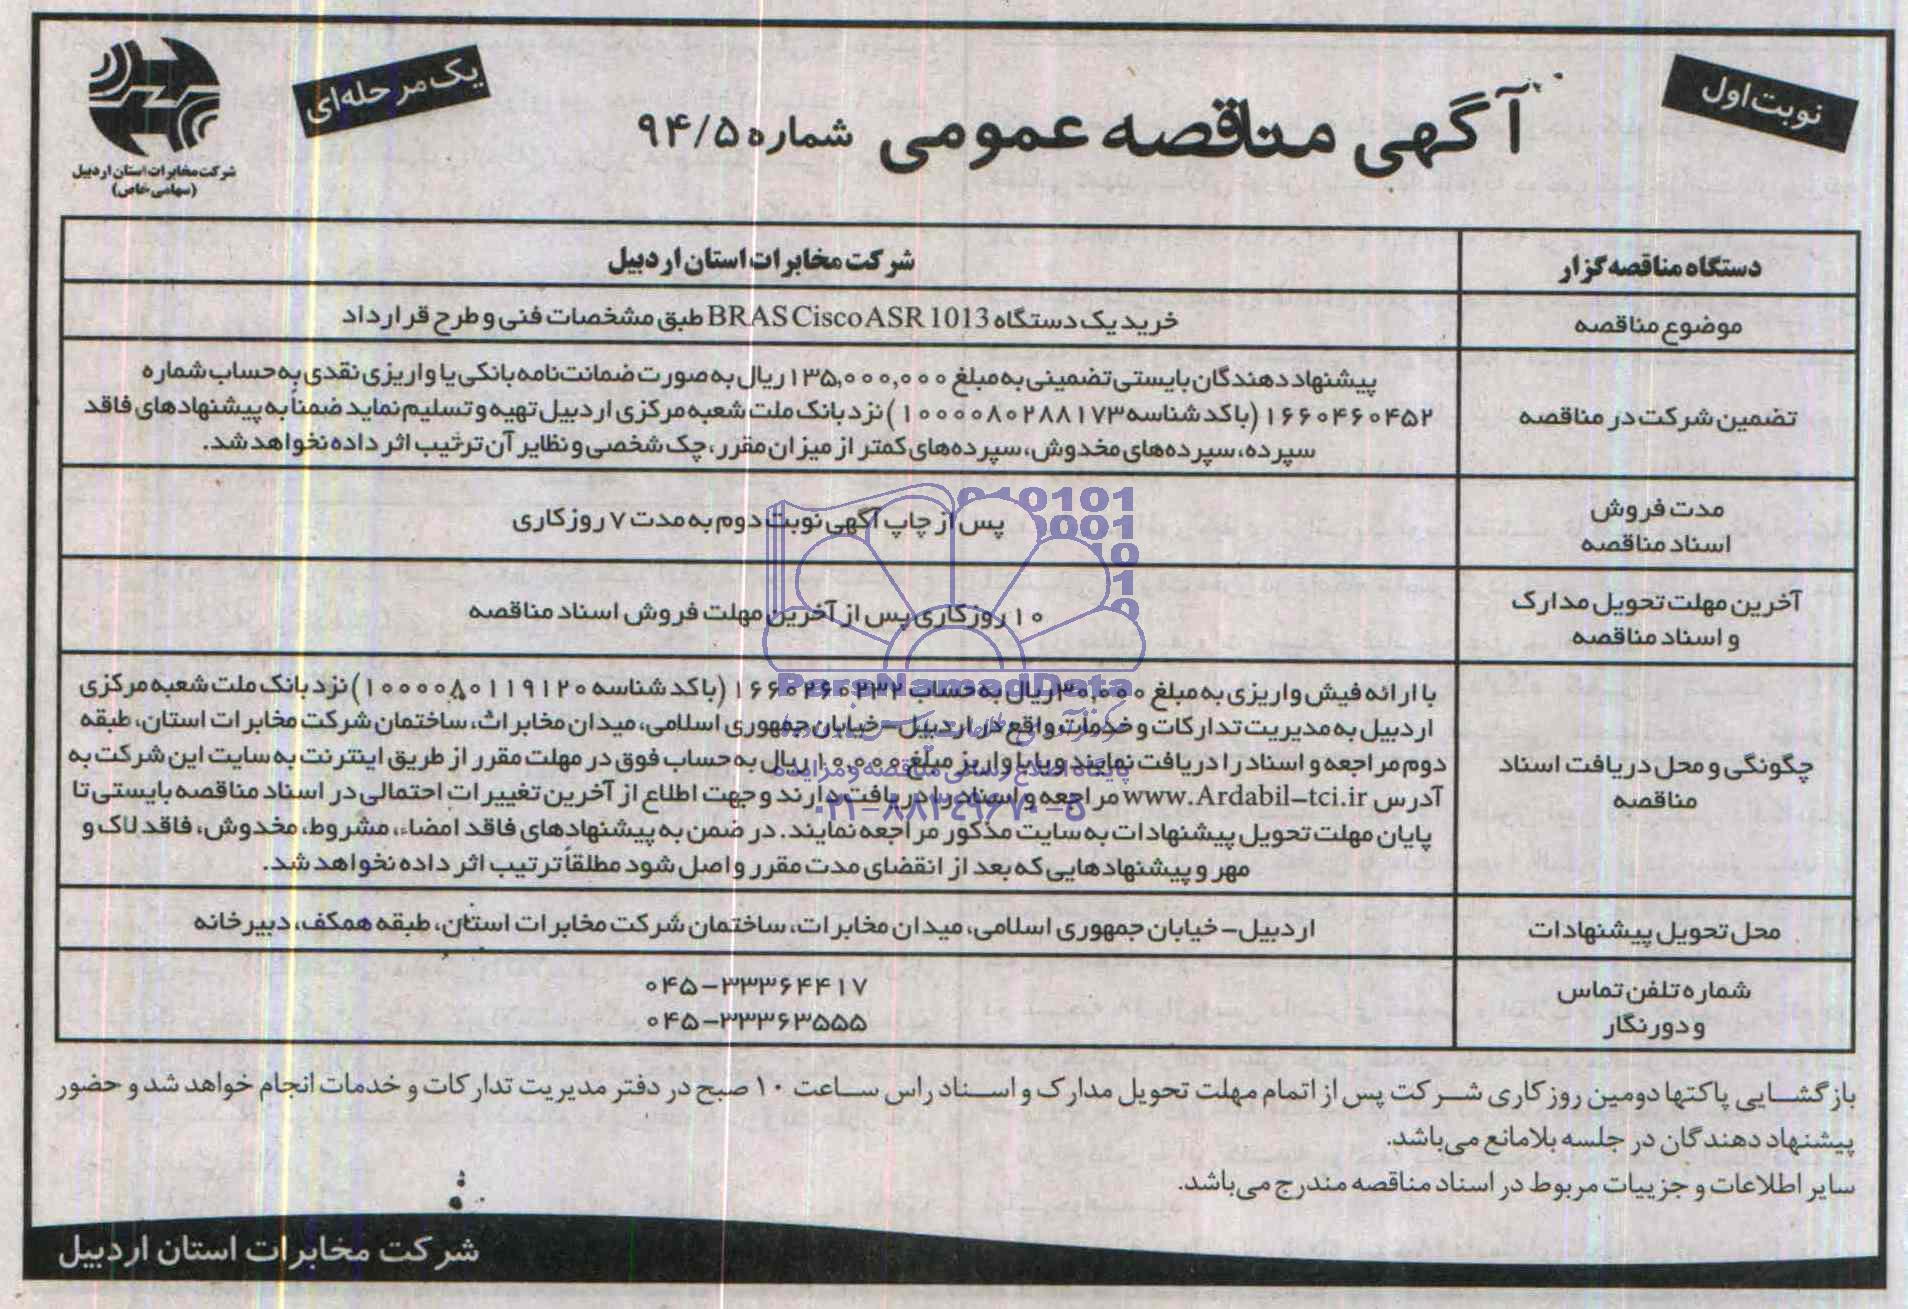 نوبت اول
آگهی مناقصه عمومی شماره ۹۴/۵
یک مرحله‌ای
شرکت مخابرات استان اردبیل
(سهامی خاص)
دستگاه مناقصه گزار
شرکت مخابرات استان اردبیل
موضوع مناقصه
خرید یک دستگاه BRAS Cisco ASR 1013 طبق مشخصات فنی و طرح قرارداد
تضمین شرکت در مناقصه
پیشنهاد دهندگان بایستی تضمینی به مبلغ ۱۳۵,۰۰۰,۰۰۰ ریال به صورت ضمانت‌نامه بانکی یا واریزی نقدی به حساب شماره
۱۶۶۰۴۶۰۴۵۲ (با کد شناسه ۱۰۰۰۰۸۰۲۸۸۱۷۳) نزد بانک ملت شعبه مرکزی اردبیل تهیه و تسلیم نماید ضمناً به پیشنهادهای فاقد
سپرده، سپرده‌های مخدوش، سپرده‌های کمتر از میزان مقرر، چک شخصی و نظایر آن ترتیب اثر داده نخواهد شد.
مدت فروش
اسناد مناقصه
پس از چاپ آگهی نوبت دوم به مدت ۷ روز کاری
آخرین مهلت تحویل مدارک
و اسناد مناقصه
۱۰ روز کاری پس از آخرین مهلت فروش اسناد مناقصه
چگونگی و محل دریافت اسناد
مناقصه
با ارائه فیش واریزی به مبلغ ۳۰,۰۰۰ ریال به حساب ۱۶۶۰۲۶۰۲۳۲ (با کد شناسه ۱۰۰۰۰۸۰۱۱۹۱۲۰) نزد بانک ملت شعبه مرکزی
اردبیل به مدیریت تدارکات و خدمات واقع در اردبیل – خیابان جمهوری اسلامی، میدان مخابرات، ساختمان شرکت مخابرات استان، طبقه
دوم مراجعه و اسناد را دریافت نمایند و یا با واریز مبلغ ۱۰,۰۰۰ ریال به حساب فوق در مهلت مقرر از طریق اینترنت به سایت این شرکت به
آدرس www.Ardabil-tci.ir مراجعه و اسناد را دریافت دارند و جهت اطلاع از آخرین تغییرات احتمالی در اسناد مناقصه بایستی تا
پایان مهلت تحویل پیشنهادات به سایت مذکور مراجعه نمایند. در ضمن به پیشنهادهای فاقد امضاء، مشروط، مخدوش، فاقد لاک و
مهر و پیشنهادهایی که بعد از انقضای مدت مقرر واصل شود مطلقاً ترتیب اثر داده نخواهد شد.
محل تحویل پیشنهادات
اردبیل – خیابان جمهوری اسلامی، میدان مخابرات، ساختمان شرکت مخابرات استان، طبقه همکف، دبیرخانه
شماره تلفن تماس
و دورنگار
۰۴۵–۳۳۳۶۴۴۱۷
۰۴۵–۳۳۳۶۳۵۵۵
بازگشایی پاکتها دومین روز کاری شرکت پس از اتمام مهلت تحویل مدارک و اسناد راس ساعت ۱۰ صبح در دفتر مدیریت تدارکات و خدمات انجام خواهد شد و حضور
پیشنهاد دهندگان در جلسه بلامانع می‌باشد.
سایر اطلاعات و جزییات مربوط در اسناد مناقصه مندرج می‌باشد.
شرکت مخابرات استان اردبیل
ParsNamadData
پایگاه اطلاع رسانی مناقصه و مزایده
۰۲۱–۸۸۳۴۹۶۷۰–۵